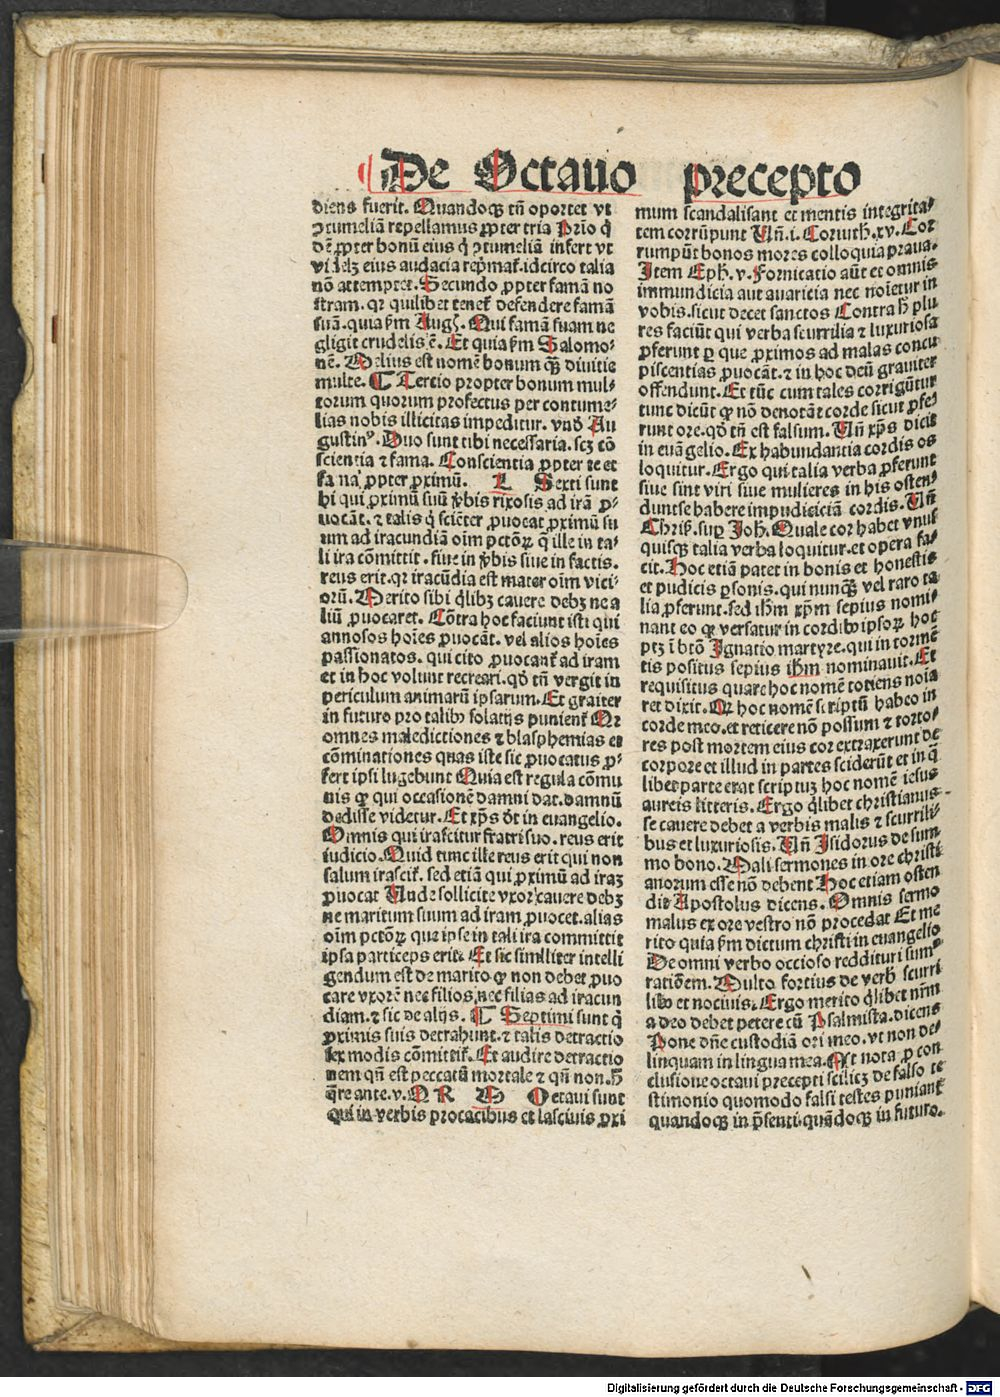 De Octauo precepto
diens fuerit. Quandoqꝫ tñ oportet vt
ꝯtumeliā repellamus ꝓpter tria Prīo q̇
dē ꝓpter bonū eius q̇ ꝯtumeliā infert vt
videlꝫ eius audacia rep̄maꝉ. idcirco talia
nō attemptet. Secundo ꝓpter famā no
stram. qꝛ quilibet teneꝉ defendere famā
suā. quia ẜm Augꝰ. Qui famā suam ne
gligit crudelis ē. Et quia ẜm Salomo⸗
nē. Melius est nomē bonum qꝫ̄ diuitie
multe. ¶ Tercio propter bonum mul⸗
torum quorum profectus per contume⸗
lias nobis illicitas impeditur. vnđ Au
gustinꝰ. Duo sunt tibi necessaria. scꝫ cō
scientia ⁊ fama. Conscientia ꝓpter te et
fama ꝓpter ꝓximū. L Sexti sunt
hi qui ꝓximū suū v̄bis rixosis ad irā ꝓ⸗
uocāt. ⁊ talis q̇ sciēter ꝓuocat ꝓximū su
um ad iracundiā oīm pctōꝝ q̄ ille in ta⸗
li ira cōmittit. siue in v̄bis siue in factis.
reus erit. qꝛ iracūdia est mater oīm vici⸗
orū. Merito sibi q̇libꝫ cauere debꝫ ne a
liū ꝓuocaret. Cōtra hoc faciunt isti qui
annosos hoīes ꝓuocāt. vel alios hoīes
passionatos. qui cito ꝓuocanꝉ ad iram
et in hoc volunt recreari. qđ tñ vergit in
periculum animarū ipsarum. Et grauiter
in futuro pro talibꝰ solatijs punienꝉ Qꝛ
omnes maledictiones ⁊ blasphemias et
cōminationes quas iste sic ꝓuocatus ꝓ⸗
fert ipsi lugebunt Quia est regula cōmu
nis ꝙ qui occasionē damni dat. damnū
dedisse videtur. Et xp̄s dt̄ in euangelio.
Omnis qui irascitur fratri suo. reus erit
iudicio. Quid tunc ille reus erit qui non
salum irasciꝉ. sed etiā qui ꝓximū ad iraꝫ
ꝓuocat Unde sollicite vxor cauere debꝫ
ne maritum suum ad iram ꝓuocet. alias
oīm pctōꝝ que ipse in tali ira committit
ipsa particeps erit. Et sic similiter intelli
gendum est de marito ꝙ non debet ꝓuo
care vxorē nec filios, nec filias ad iracun
diam. ⁊ sic de alijs. ¶ Septimi sunt q̇
ꝓximis suis detrahunt. ⁊ talis detractio
sex modis cōmittiꝉ. Et audire detractio
nem qn̄ est peccatū mortale ⁊ qn̄ non. H̄
q̄re ante. v. Q R M Octaui sunt
qui in verbis procacibus et lasciuis ꝓxi
mum scandalisant et mentis integrita⸗
tem corrūpunt Uñ. i. Corinth. xv. Cor
rumpūt bonos mores colloquia praua.
Item Eph̄. v. Fornicatio aūt et omnis
immundicia aut auaricia nec noīetur in
vobis. sicut decet sanctos Contra h̄ plu
res faciūt qui verba scurrilia ⁊ luxuriosa
ꝓferunt ꝑ que ꝓximos ad malas concu
piscentias ꝓuocāt. ⁊ in hoc deū grauiter
offendunt. Et tūc cum tales corrigūtur
tunc dicūt ꝙ nō denotāt corde sicut ꝓfe⸗
runt ore. qđ tñ est falsum. Uñ xp̄s dicit
in euāgelio. Ex habundantia cordis os
loquitur. Ergo qui talia verba ꝓferunt
siue sint viri siue mulieres in his osten⸗
dunt se habere impudiciciā cordis. Uñ
Chris. suꝑ Joh̄. Quale cor habet vnus
quisqꝫ talia verba loquitur. et opera fa⸗
cit. Hoc etiā patet in bonis et honestis
et pudicis ꝑsonis. qui nunqꝫ̄ vel raro ta
lia ꝓferunt. sed ih̄m xp̄m sepius nomi⸗
nant eo ꝙ versatur in cordibꝰ ipsoꝝ hoc
ptꝫ ī btō Ignatio martyre. qui in tormē
tis positus sepius ih̄m nominauit. Et
requisitus quare hoc nomē totiens noīa
ret dixit. Qꝛ hoc nomē scriptū habeo in
corde meo. et reticere nō possum ⁊ torto⸗
res post mortem eius cor extraxerunt de
corpore et illud in partes sciderūt et in q̄
libet parte erat scriptuꝫ hoc nomē iesus
aureis litteris. Ergo q̇libet christianus
se cauere debet a verbis malis ⁊ scurrili⸗
bus et luxuriosis. Uñ Isidorus de sum
mo bono. Mali sermones in ore christi
anorum esse nō debent Hoc etiam osten
dit Apostolus dicens. Omnis sermo
malus ex ore vestro nō procedat Et me
rito quia ẜm dictum christi in euangelio
De omni verbo occioso reddituri sumꝰ
ratiōem. Multo fortius de verb̄ scurri
libꝰ et nociuis. Ergo merito q̇libet nr̄m
a deo debet petere cū Psalmista. dicens
Pone dn̄e custodiā ori meo. vt non de⸗
linquam in lingua mea. Ast nota ꝓ con
clusione octaui precepti scilicꝫ de falso te
stimonio quomodo falsi testes puniant̄
quandoqꝫ in p̄senti. quādoqꝫ in futuro.
Digitalisierung gefördert durch die Deutsche Forschungsgemeinschaft - DFG